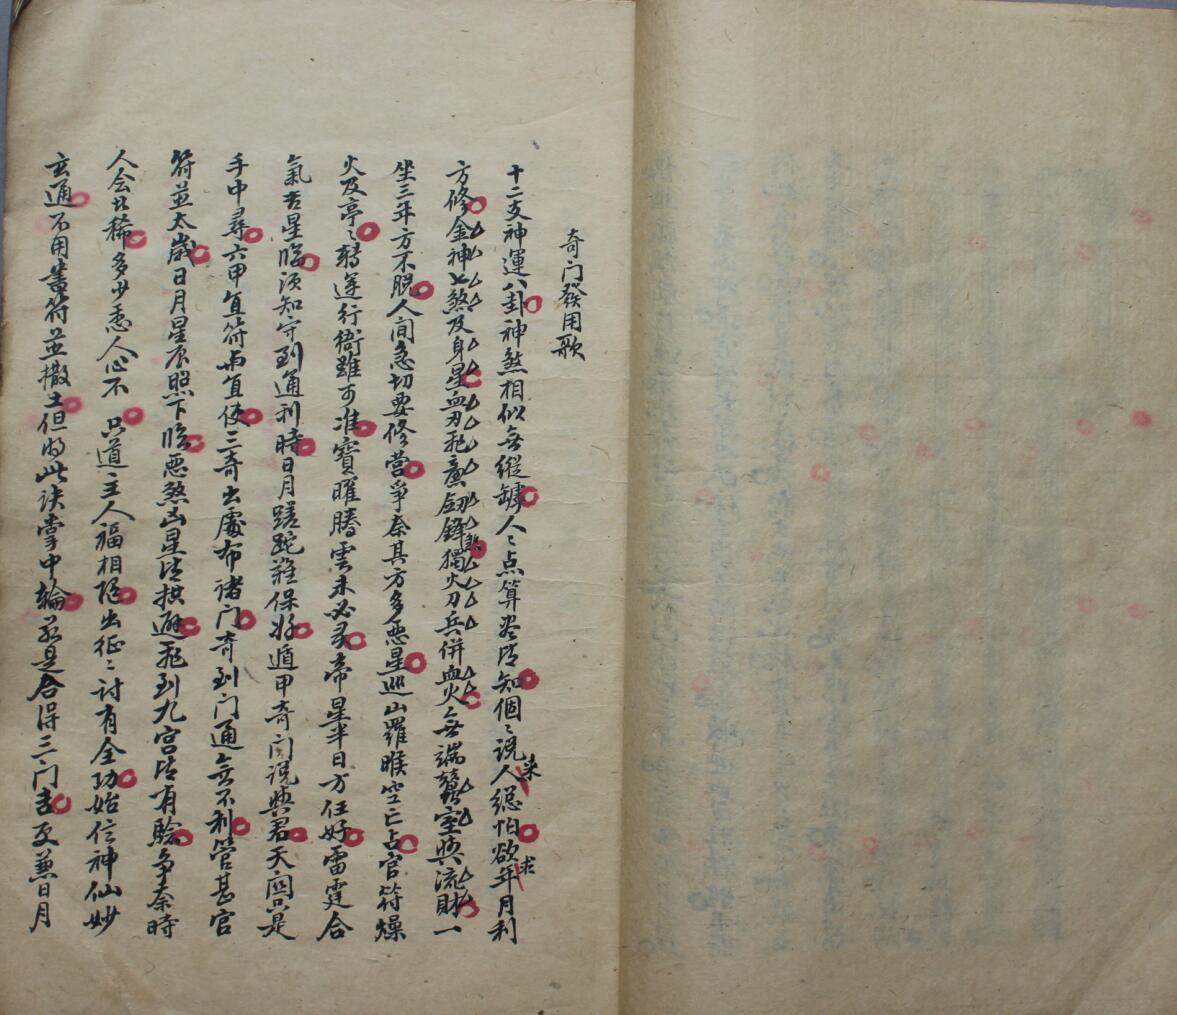 奇门發用歌
十二支神運八卦神煞相似無縱罅人〻点算尽皆知個〻説来人總怕欲求年月利
方修金神七煞及身星血刃飛廉劔鋒煞獨火刀兵併血火無端蠶室與流財一
坐三年方不脱人间急切要修营爭奈其方多惡星巡山羅睺空亡占官符燥
火及亭〻轉運行衙雖可准寶曜騰雲未必灵帝星半日方任好雷霆合
氣吉星臨须知守到通利時日月蹉跎难保好遁甲奇门説與君天罡只是
手中尋六甲直符與直使三奇出處布诸门奇到门通無不利管甚官
符並太歲日月星辰照下臨惡煞凶星皆拱避飛到九宫皆有驗争奈時
人会者稀多少愚人心不 只道主人福相随出征〻討有全功始信神仙妙
玄通不用書符並撒土但将此诀掌中輪若是合得三门吉更兼日月